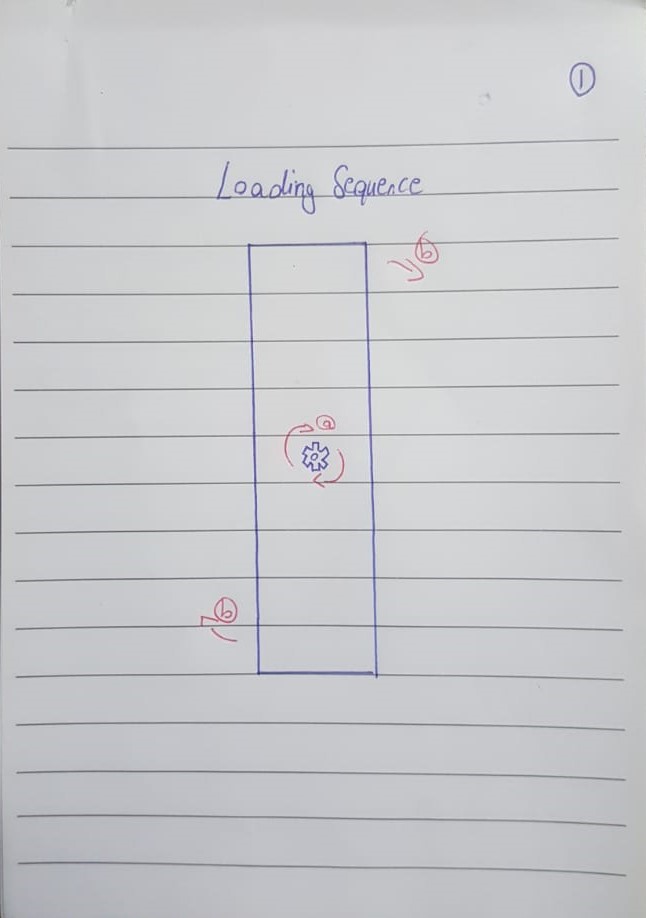 ①
Loading Sequence
ⓑ
ⓐ
ⓑ